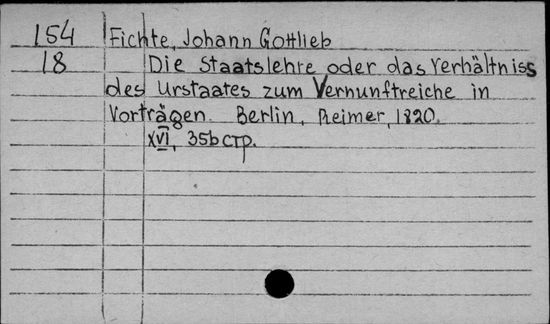 154 Fichte, Johann Gottlieb
18 Die Staatslehre oder das Verhältniss
des Urstaates zum Vernunftreiche in
Vorträgen. Berlin, Reimer, 1820.
XVI, 356 стр.